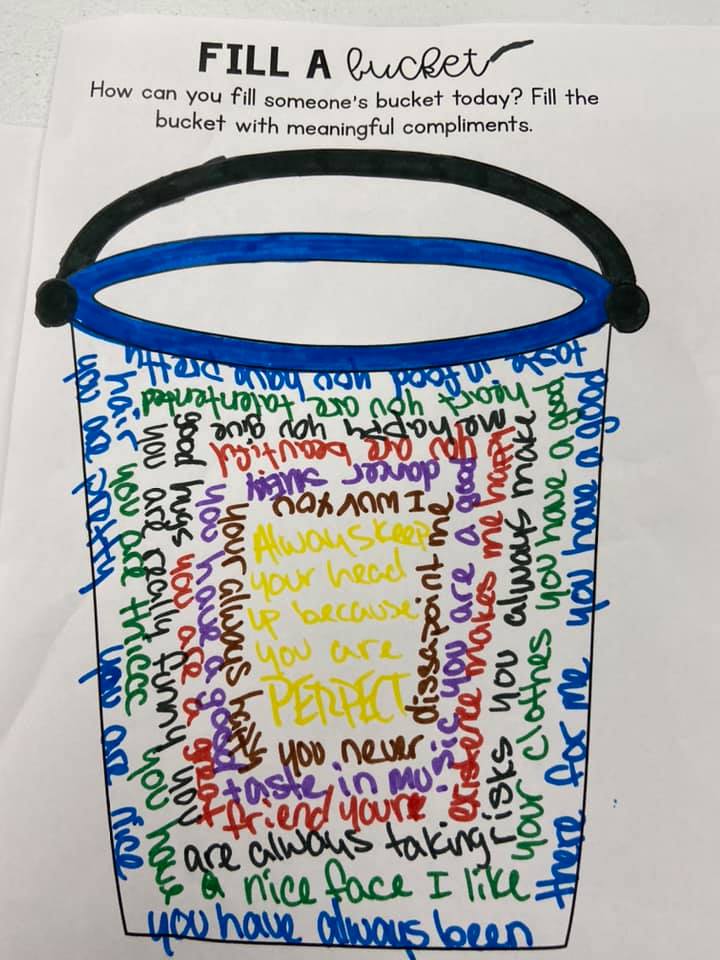 FILL A bucket
How can you fill someone's bucket today? Fill the
bucket with meaningful compliments.
you are pretty you are nice
you have always been
there for me you have a good
taste in food you have pretty
hair you are thicc you have
a nice face I like
your clothes you have a good
heart you are talentented
you are really funny you
are always taking
risks you always make
me happy you give
good hugs you are a great
friend youre
existence makes me happy
you are beautiful
you have a good
taste in music
you are a good
dancer
your always
you never
dissapoint me
I
you
Always keep
your head
up because
you are
PERFECT